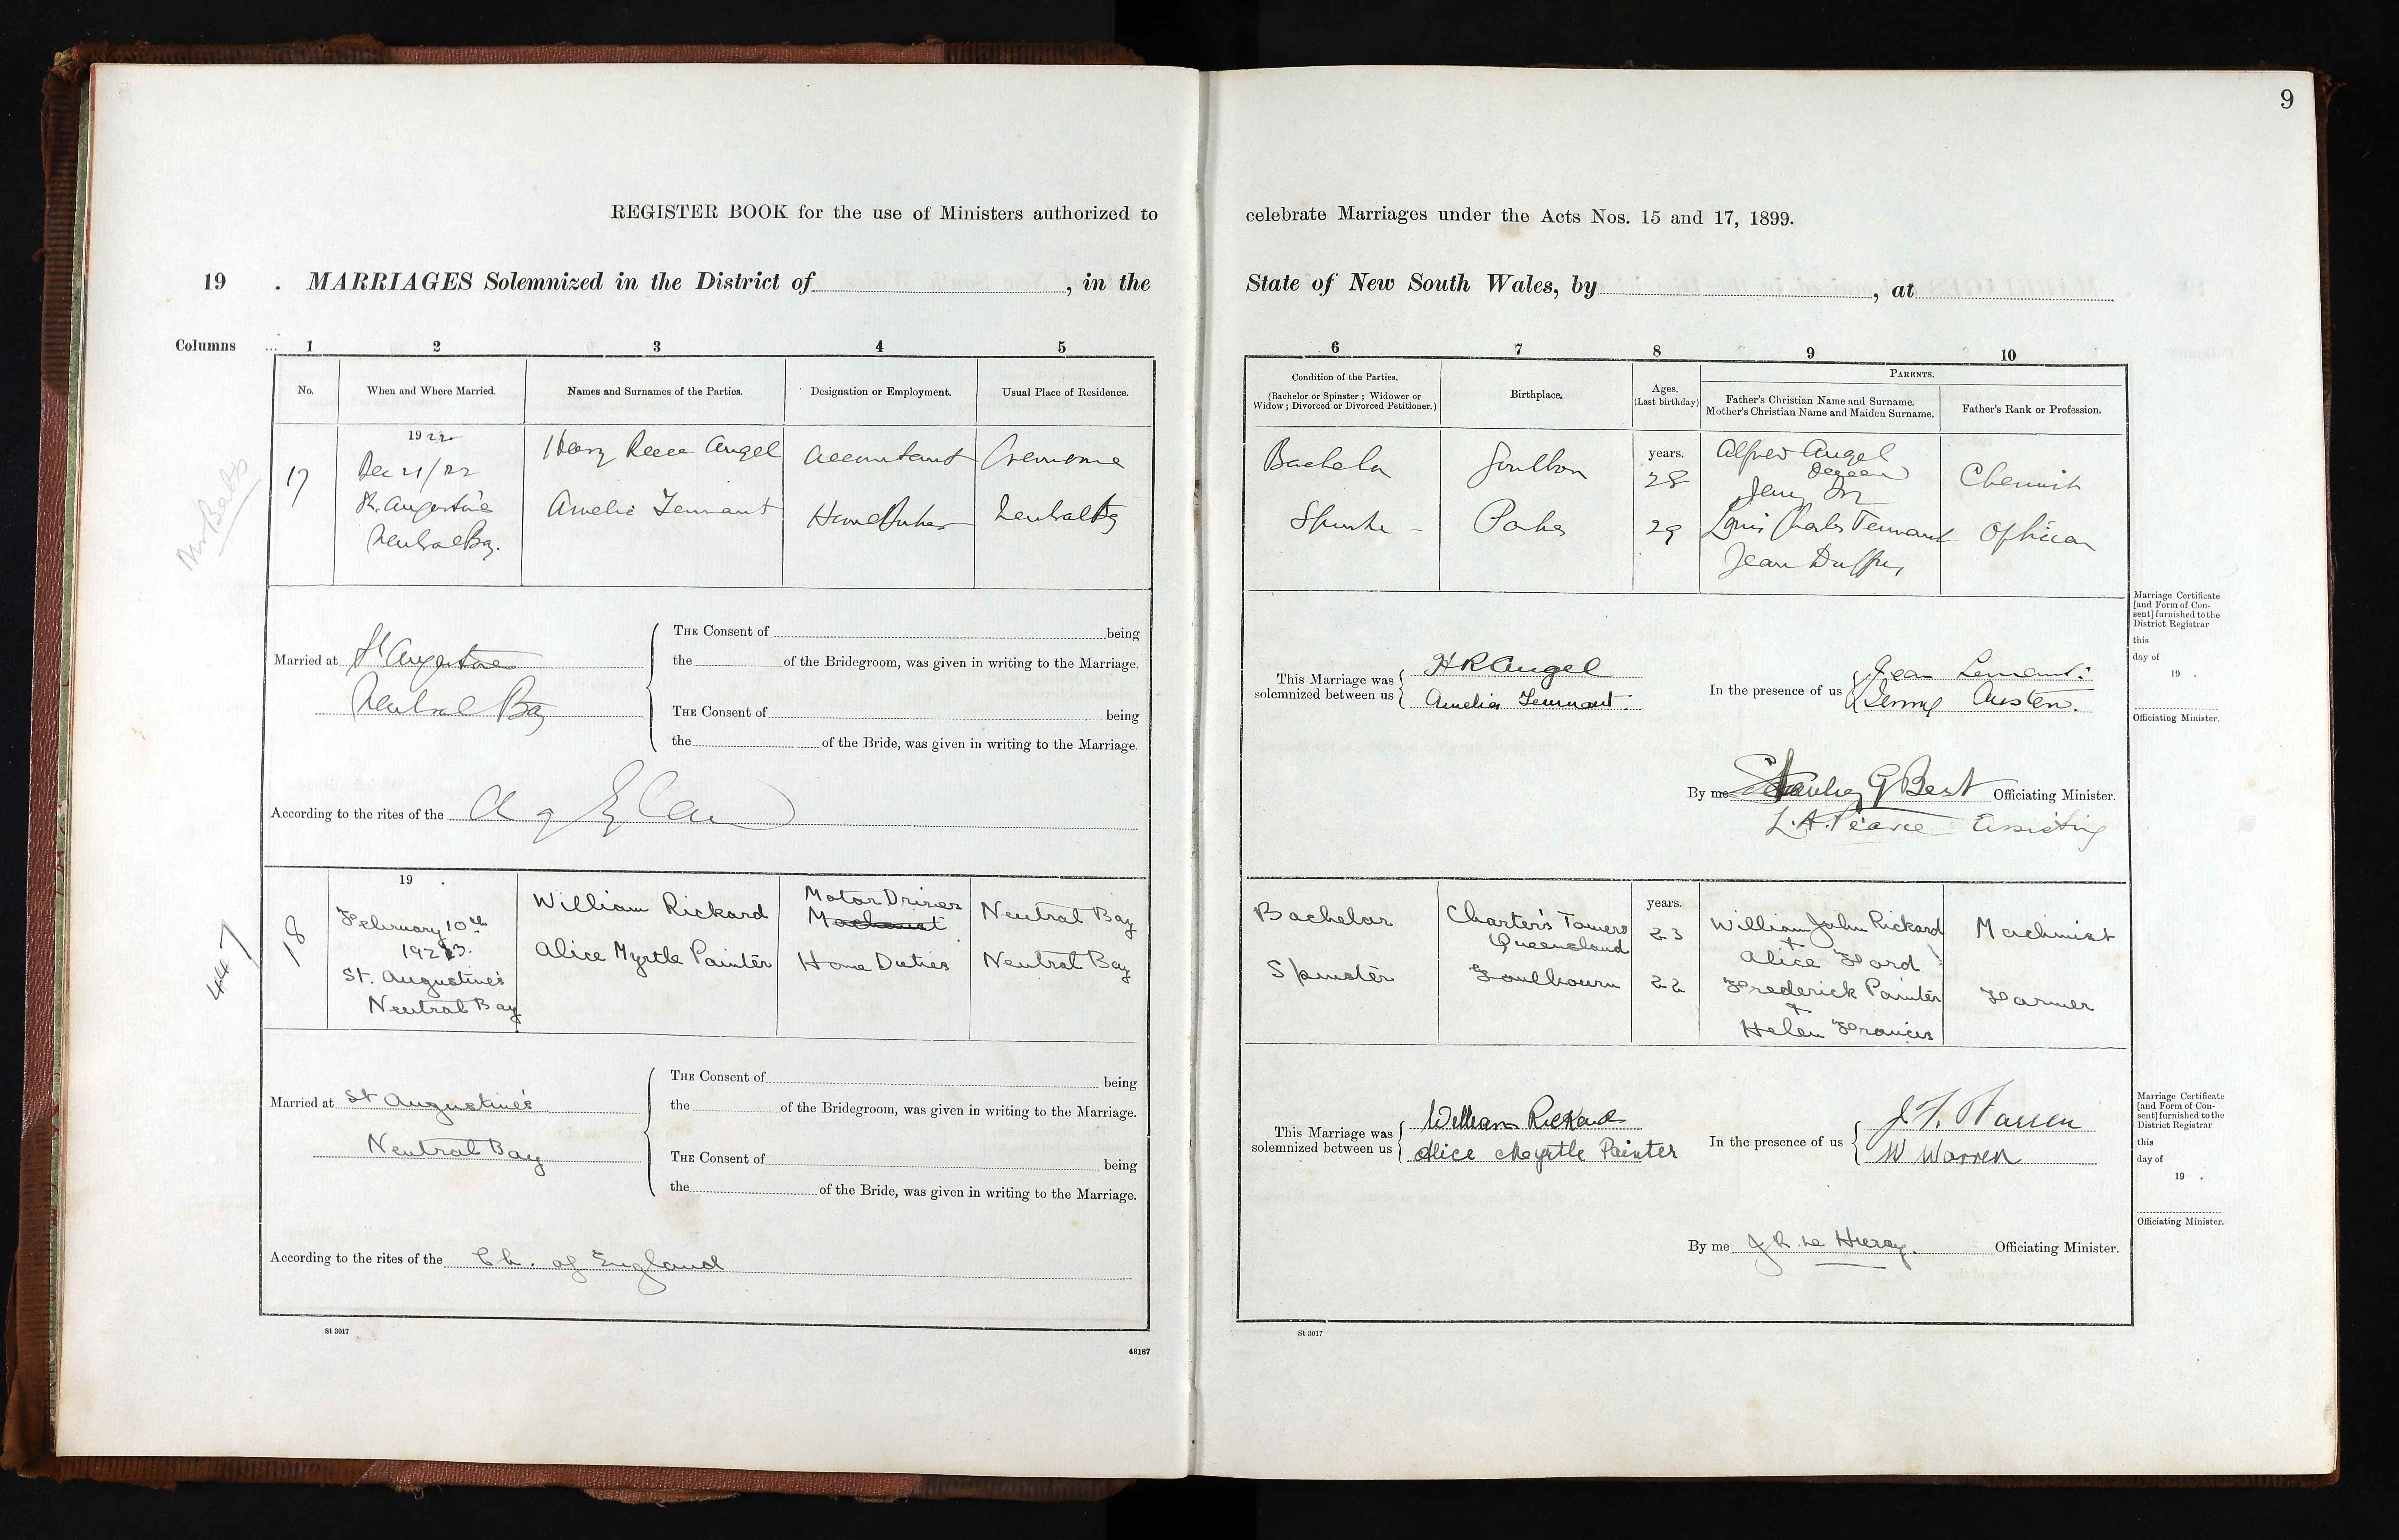 9
REGISTER BOOK for the use of Ministers authorized to celebrate Marriages under the Acts Nos. 15 and 17, 1899.
19 . MARRIAGES Solemnized in the District of , in the State of New South Wales, by , at
Columns ... 1 2 3 4 5 6 7 8 9 10
No.
When and Where Married.
Names and Surnames of the Parties.
Designation or Employment.
Usual Place of Residence.
Condition of the Parties.
(Bachelor or Spinster ; Widower or
Widow ; Divorced or Divorced Petitioner.)
Birthplace.
Ages.
(Last birthday)
PARENTS.
Father's Christian Name and Surname.
Mother's Christian Name and Maiden Surname.
Father's Rank or Profession.
17
1922
Dec 21/22
St. Augustine
Neutral Bay.
Harry Reece Angel
Amelia Tennant
Accountant
Home Duties
Cremorne
Neutral Bay
Bachelor
Spinster
Goulbon
Parkes
years.
28
29
Alfred Angel
Jenny
Louis Charles Tennant
Jean Duffy
Chemist
Optician
Married at St Augustine
Neutral Bay
THE Consent of being
the of the Bridegroom, was given in writing to the Marriage.
THE Consent of being
the of the Bride, was given in writing to the Marriage.
According to the rites of the
This Marriage was
solemnized between us
H R Angel
Amelia Tennant.
In the presence of us
Jean Tennant.
Austen.
By me Stanley G Best Officiating Minister.
L.A. Pearce Assisting
Marriage Certificate
[and Form of Con-
sent] furnished to the
District Registrar
this
day of
19 .
Officiating Minister.
447
18
19 .
February 10th
1923.
St. Augustine's
Neutral Bay
William Rickard
Alice Myrtle Painter
Motor Driver
Machinist
Home Duties
Neutral Bay
Neutral Bay
Bachelor
Spinster
Charter's Towers
Queensland
Goulbourn
years.
23
22
William John Rickard
+
Alice Ford
Frederick Painter
+
Helen Francis
Machinist
Farmer
Married at St Augustine's
Neutral Bay
THE Consent of being
the of the Bridegroom, was given in writing to the Marriage.
THE Consent of being
the of the Bride, was given in writing to the Marriage.
According to the rites of the Ch. of England
This Marriage was
solemnized between us
William Rickard
Alice Myrtle Painter
In the presence of us
J. T. Warren
W Warren
By me J R Le Huray. Officiating Minister.
Marriage Certificate
[and Form of Con-
sent] furnished to the
District Registrar
this
day of
19 .
Officiating Minister.
St 3017
43187
St 3017